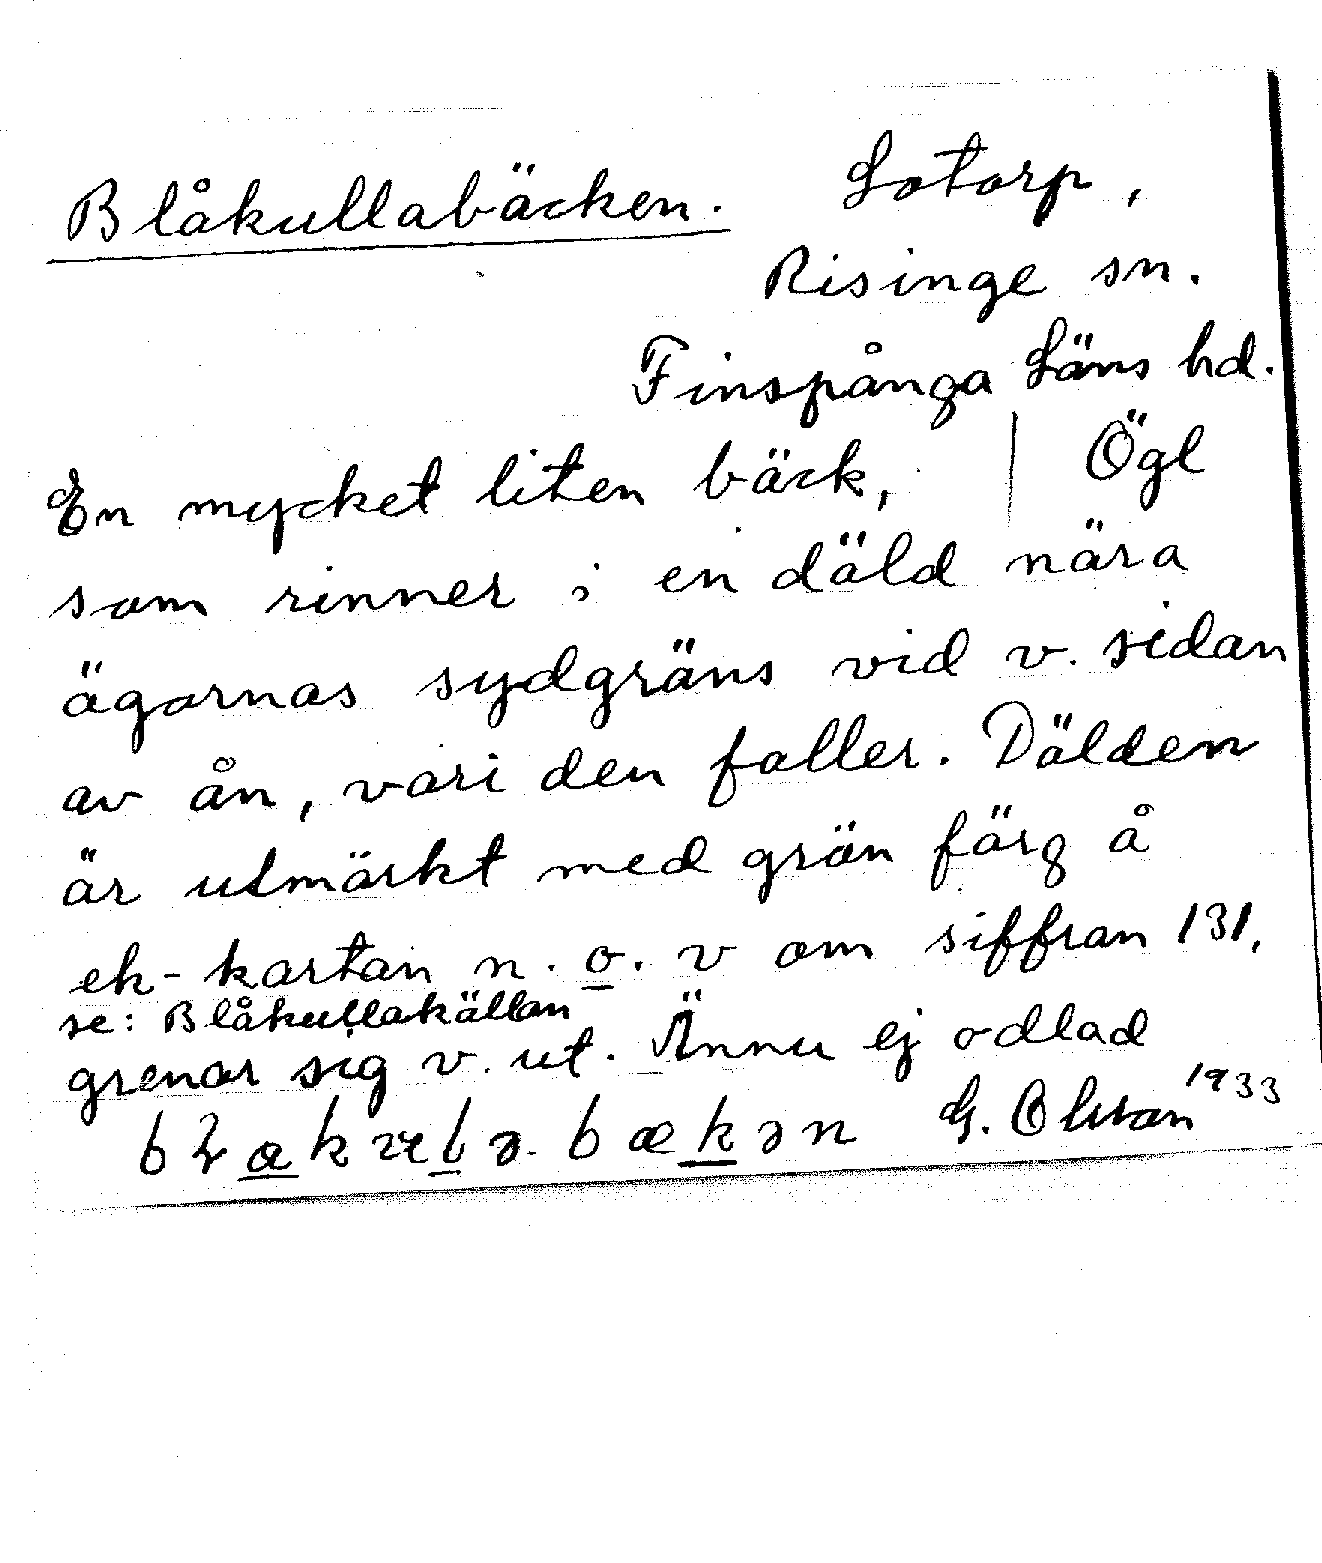 Blåkullabäcken.
Lotorp,
Risinge sn.
Finspånga Läns hd.
Ögl
En mycket liten bäck,
som rinner i en däld nära
ägornas sydgräns vid v. sidan
av ån, vari den faller. Dälden
är utmärkt med grön färg å
ek-kartan n. o. v om siffran 131,
se: Blåkullakällan
grenar sig v. ut. Ännu ej odlad
G. Olsson 1933